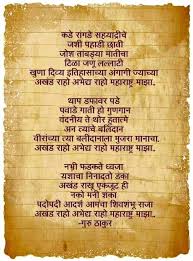 कडे रांगडे सहयाद्रीचे
जशी पहाडी छावी
जोश तांबड्या मातीचा
टिळा जणू ललाटी
खुणा दिव्य इतिहासाच्या अंगागी ज्याच्या
अखंड राहो अभेद्य राहो महाराष्ट्र माझा.
थाप डफावर पडे
पवाडे गाती ही गुणगान
वंदनीय ते थोर हूतात्मे
अन त्यांचे बलिदान
वीरांच्या त्या बलीदानाला मुजरा मानाचा.
अखंड राहो अभेद्य राहो महाराष्ट्र माझा.
नभी फडकते ध्वजा
यशाचा निनादतो डंका
अखंड राखू एकजुट ही
नको मनी शंका
पदोपदी आदर्श आमंचा शिवशंभू राजा
अखंड राहो अभेद्य राहो महाराष्ट्र माझा.
-गुरु ठाकुर